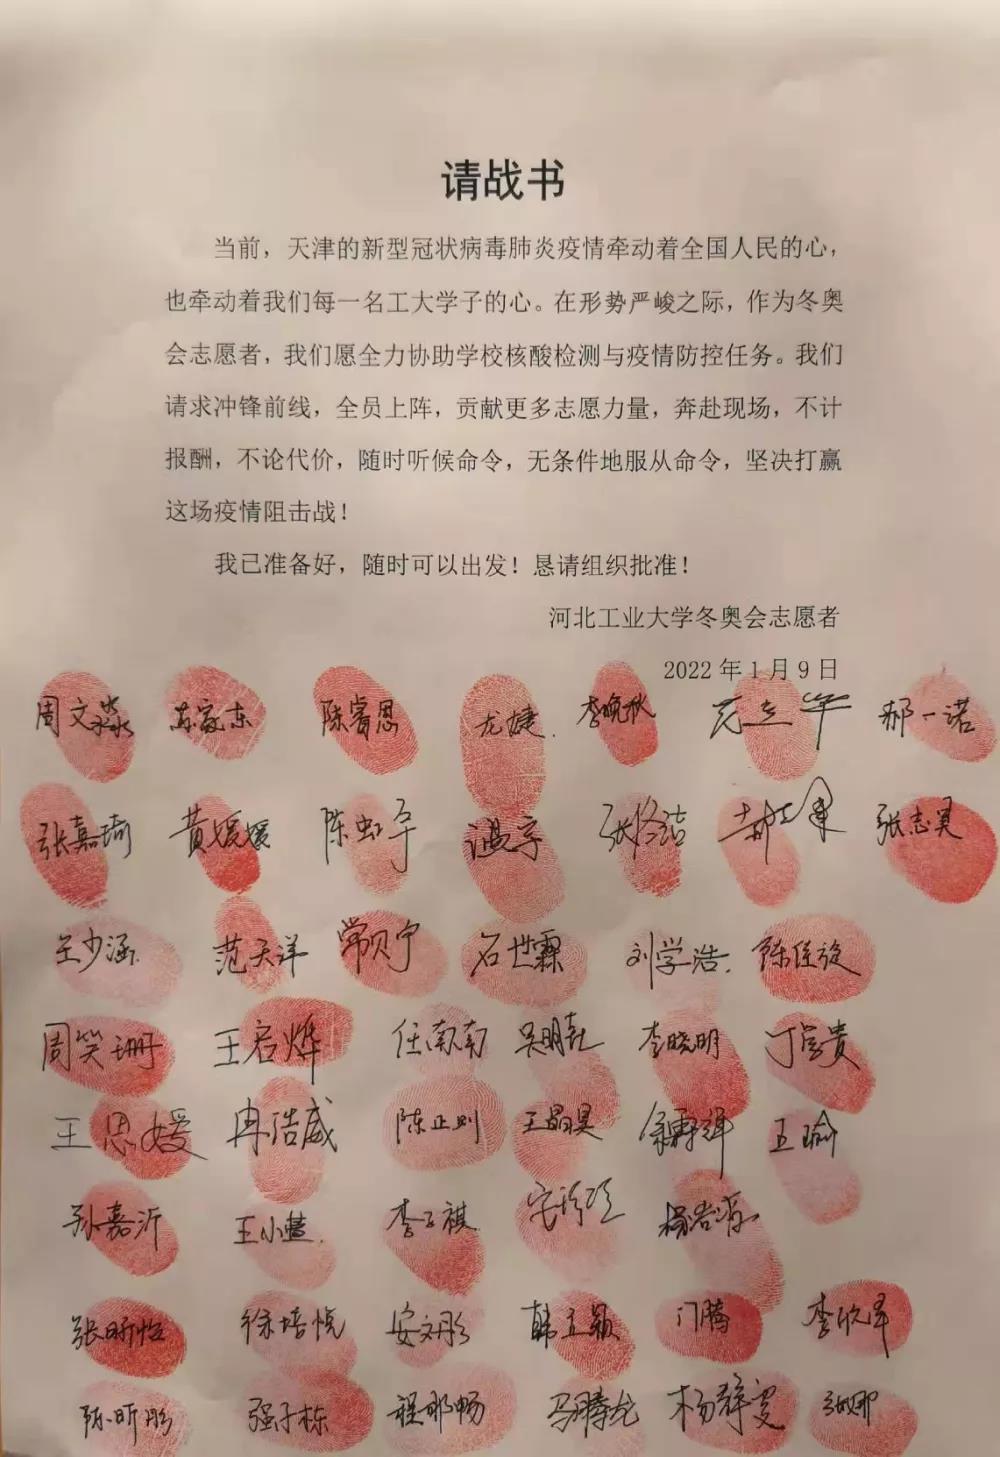 请战书
当前，天津的新型冠状病毒肺炎疫情牵动着全国人民的心，
也牵动着我们每一名工大学子的心。在形势严峻之际，作为冬奥
会志愿者，我们愿全力协助学校核酸检测与疫情防控任务。我们
请求冲锋前线，全员上阵，贡献更多志愿力量，奔赴现场，不计
报酬，不论代价，随时听候命令，无条件地服从命令，坚决打赢
这场疫情阻击战！
我已准备好，随时可以出发！恳请组织批准！
河北工业大学冬奥会志愿者
2022年1月9日
周文淼 苏家东 陈睿恩 尤婕 李晚秋 郝一诺
张嘉琦 黄媛媛 陈虹宇 温宇 张志昊
王少涵 范天洋 常贝宁 石世霖 刘学浩
周笑珊 王启烨 任南南 李晓明
王思媛 冉浩威 陈正则 王晶昊 王瑜
孙嘉沂 王小慧 李子祺
张昕怡 徐培悦 安文彤 韩立颖 门腾 李欣泽
陈昕彤 强子栋 程郁畅 马腾龙 杨静雯 张娜